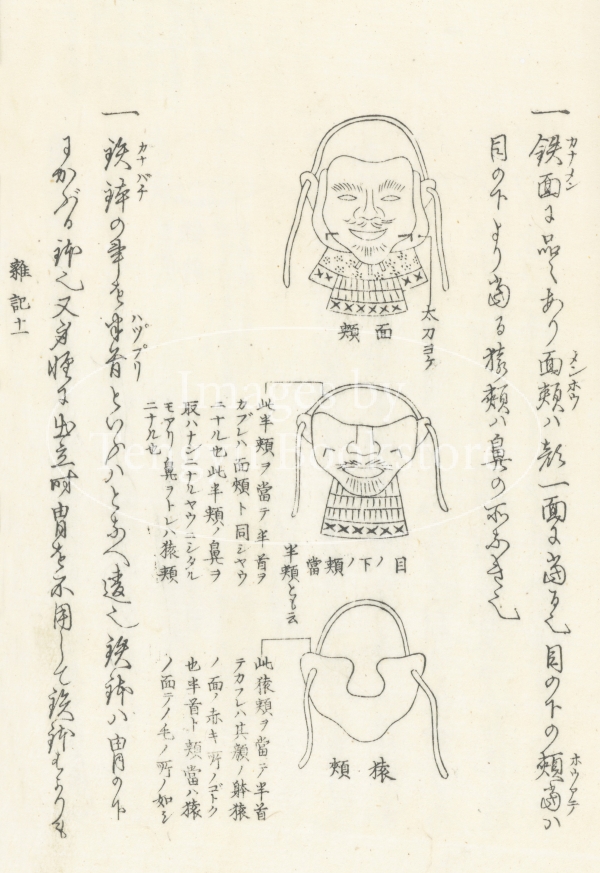 一鉄面に品々あり面頬ハ顔一面に當る也目の下の頬當ハ
カナメン
メンホウ
ホウアテ
目の下より當る猿頬ハ鼻の所なき也
面頬
太刀ヨケ
目ノ下ノ頬當
半頬とも云
此半頬ヲ當テ半首ヲ
カブレハ面頬ト同シヤウ
ニナル也此半頬ノ鼻ヲ
取ハナシニナルヤウニシタル
モアリ鼻ヲトレハ猿頬
ニナル也
猿頬
此猿頬ヲ當テ半首
テカフレハ其顔ノ躰猿
ノ面ノ赤キ所ノゴトク
也半首ト頬當ハ猿
ノ面テノ毛ノ所ノ如シ
一鉄鉢の事を半首といふハとなへ違也鉄鉢ハ冑の下
カナバチ
ハツプリ
にかぶる鉢也又身軽に出立時冑を不用して鉄鉢はかりも
雜記十一
Images by
Bookstore